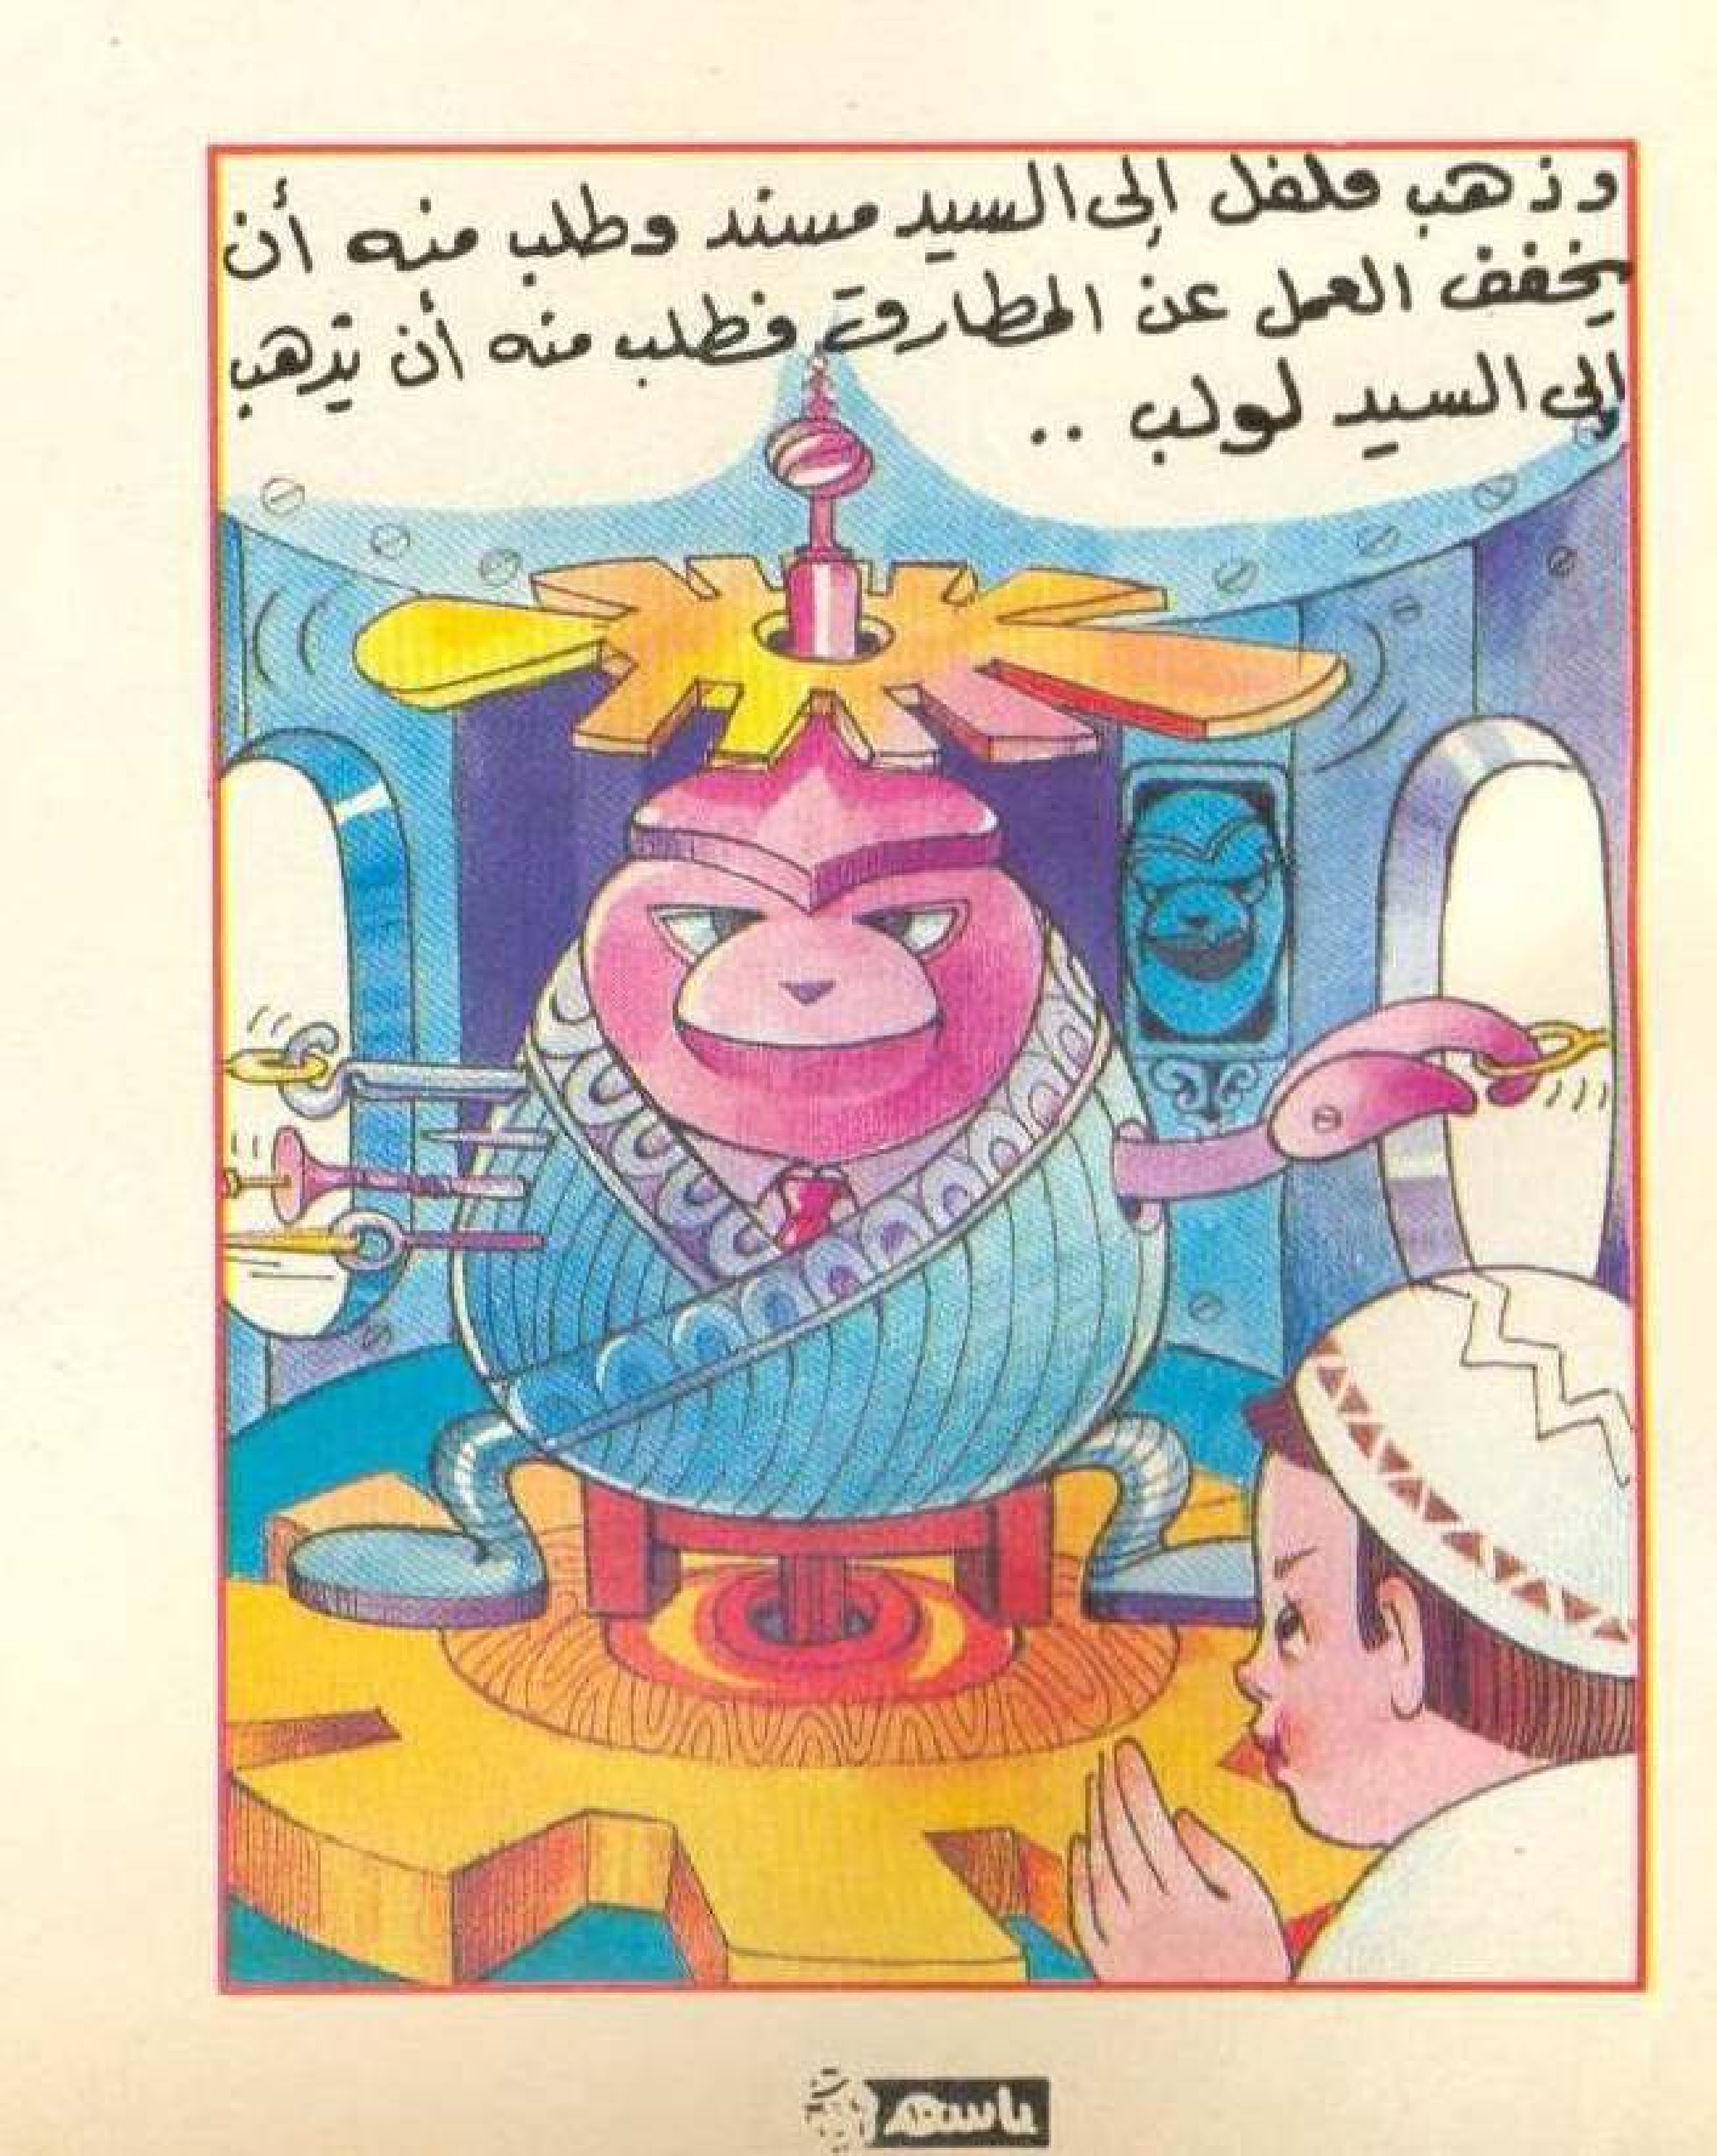 وذهب فلفل إلى السيد مسند وطلب منه أن
يخفف العمل عن المطارق فطلب منه أن يذهب
إلى السيد لولب ..
باسم